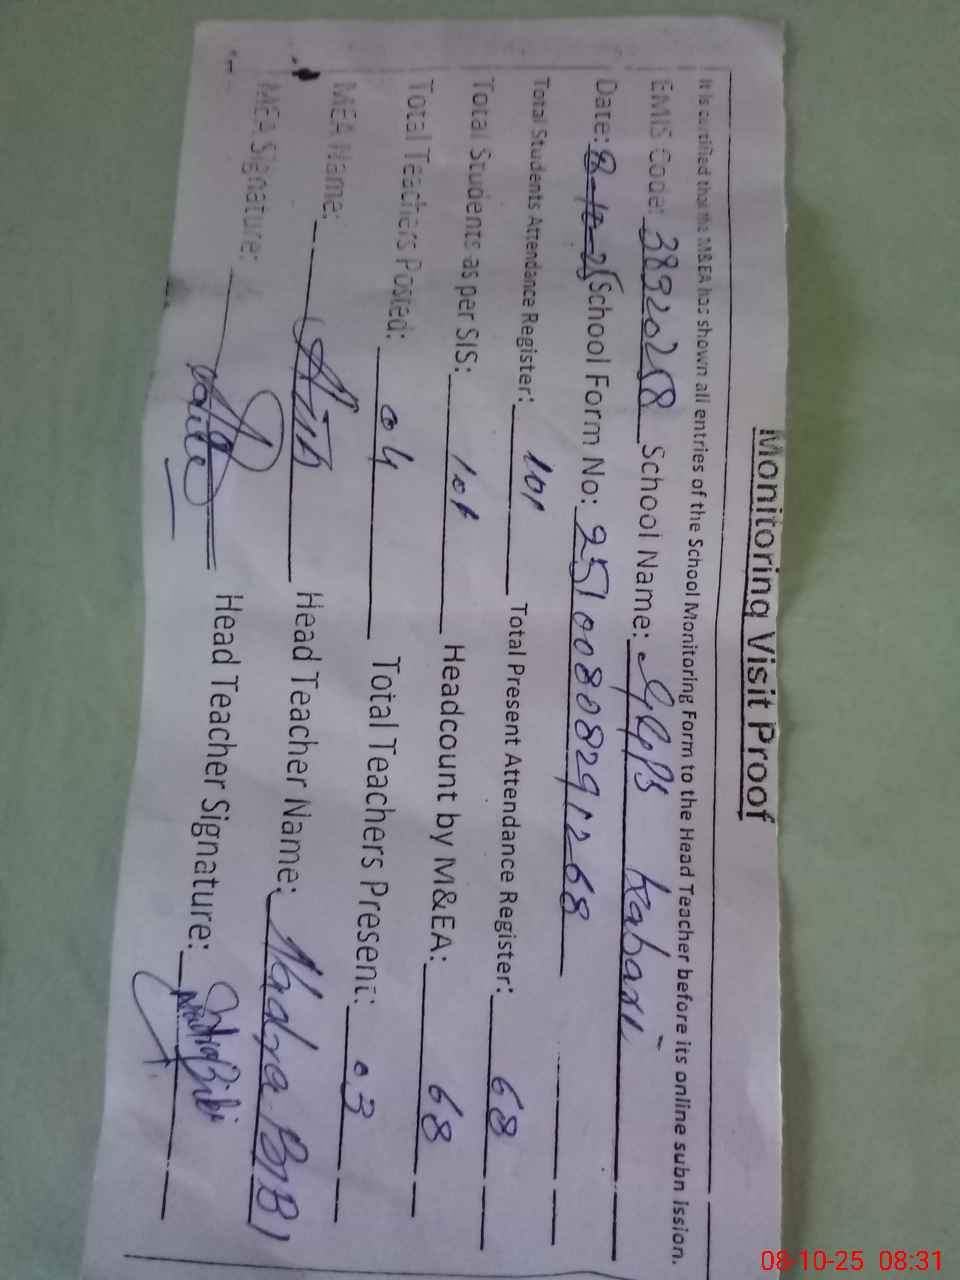 Monitoring Visit Proof
It is certified that the M&EA has shown all entries of the School Monitoring Form to the Head Teacher before its online subn ission.
EMIS Code: 38920258 School Name: GGPS Kabari
Date: 8-10-25 School Form No: 25100808291268
Total Students Attendance Register: 101 Total Present Attendance Register: 68
Total Students as per SIS: 101 Headcount by M&EA: 68
Total Teachers Posted: 04 Total Teachers Present: 03
MEA Name: Head Teacher Name: Nadra BiBi
MEA Signature: Head Teacher Signature: Nadra Bibi
08-10-25 08:31